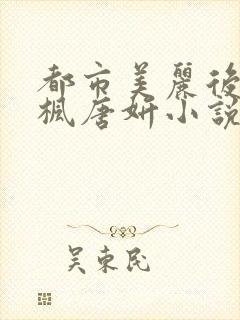 都市美麗後
楓唐妍小說
吴東民